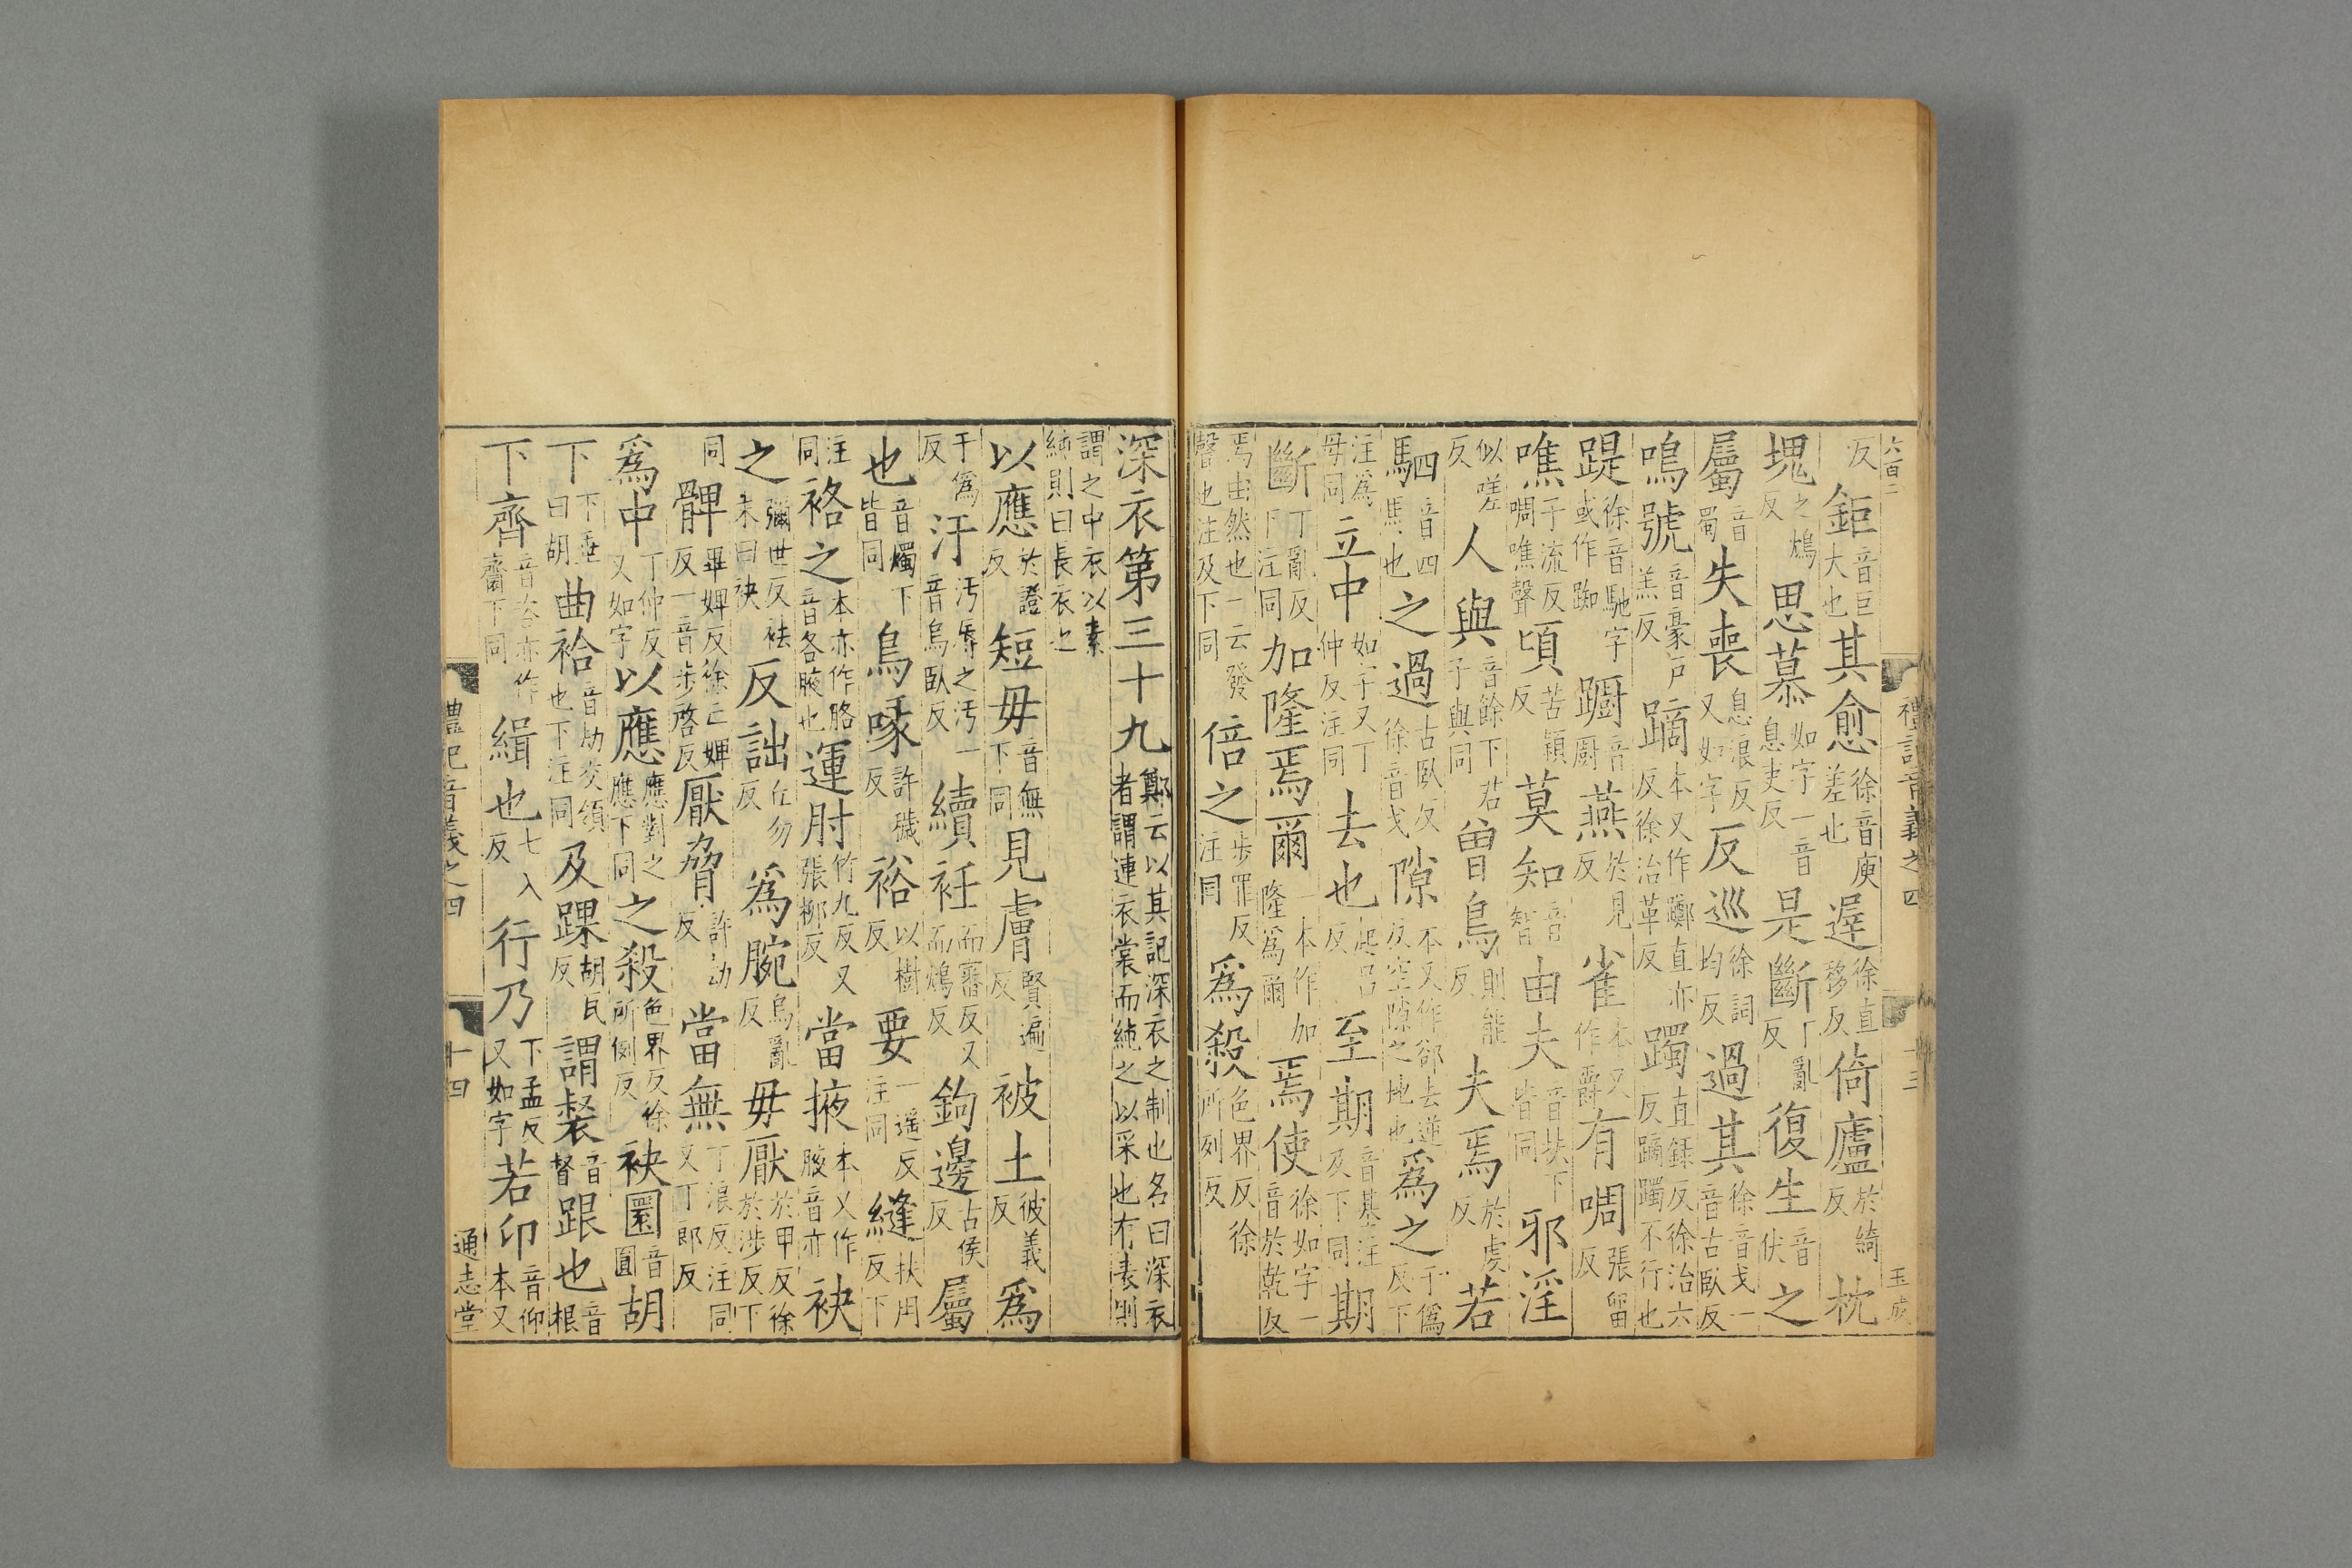 六百二 禮記音義之四 十三 玉成
反 鉅音巨大也其愈徐音庾差也遲徐直移反倚廬於綺反枕
塊之鴆反思慕如字一音息吏反是斷丁亂反復生音伏之
屬音蜀失喪息浪反又如字反巡徐詞均反過其徐音戈一音古臥反
鳴號音豪戶羔反蹢本又作躑直亦反徐治革反躅直錄反徐治六反蹢躅不行也
踶徐音馳字或作踟躕音廚燕於見反雀本又作爵有啁張留反
噍子流反啁噍聲頃苦穎反莫知音智由夫音扶下皆同邪淫
似嗟反人與音餘下若子與同曾鳥則能反夫焉於虔反若
駟音四馬也之過古臥反徐音戈隙本又作郤去逆反空隙之地也爲之于僞反下
注爲母同立中如字又丁仲反注同去也起呂反至期音基注及下同期
斷丁亂反下注同加隆焉爾一本作加隆爲爾焉使徐如字一音於乾反
焉由然也一云發聲也注及下同倍之步罪反注同爲殺色界反徐所列反
深衣第三十九鄭云以其記深衣之制也名曰深衣者謂連衣裳而純之以采也有表則
謂之中衣以素純則曰長衣也
以應於證反短毋音無下同見膚賢遍反被土彼義反爲
于僞反汙汚辱之汚一音烏臥反續衽而審反又而鴆反鉤邊古侯反屬
也音燭下皆同鳥喙許穢反裕以樹反要一遥反注同縫扶用反下
注同袼之本亦作胳音各腋也運肘竹九反又張柳反當掖本又作腋音亦袂
之彌世反袪末曰袂反詘丘勿反爲腕烏亂反毋厭於甲反徐於涉反下
同髀畢婢反徐亡婢反一音步啓反厭脅許劫反當無丁浪反注同又丁郎反
爲中丁仲反又如字以應應對之應下同之殺色界反徐所例反袂圜音圓胡
下下垂曰胡曲袷音劫交領也下注同及踝胡瓦反謂裻音督跟也音根
下齊音咨亦作齋下同緝也七入反行乃下孟反又如字若卬音仰本又
禮記音義之四 十四 通志堂